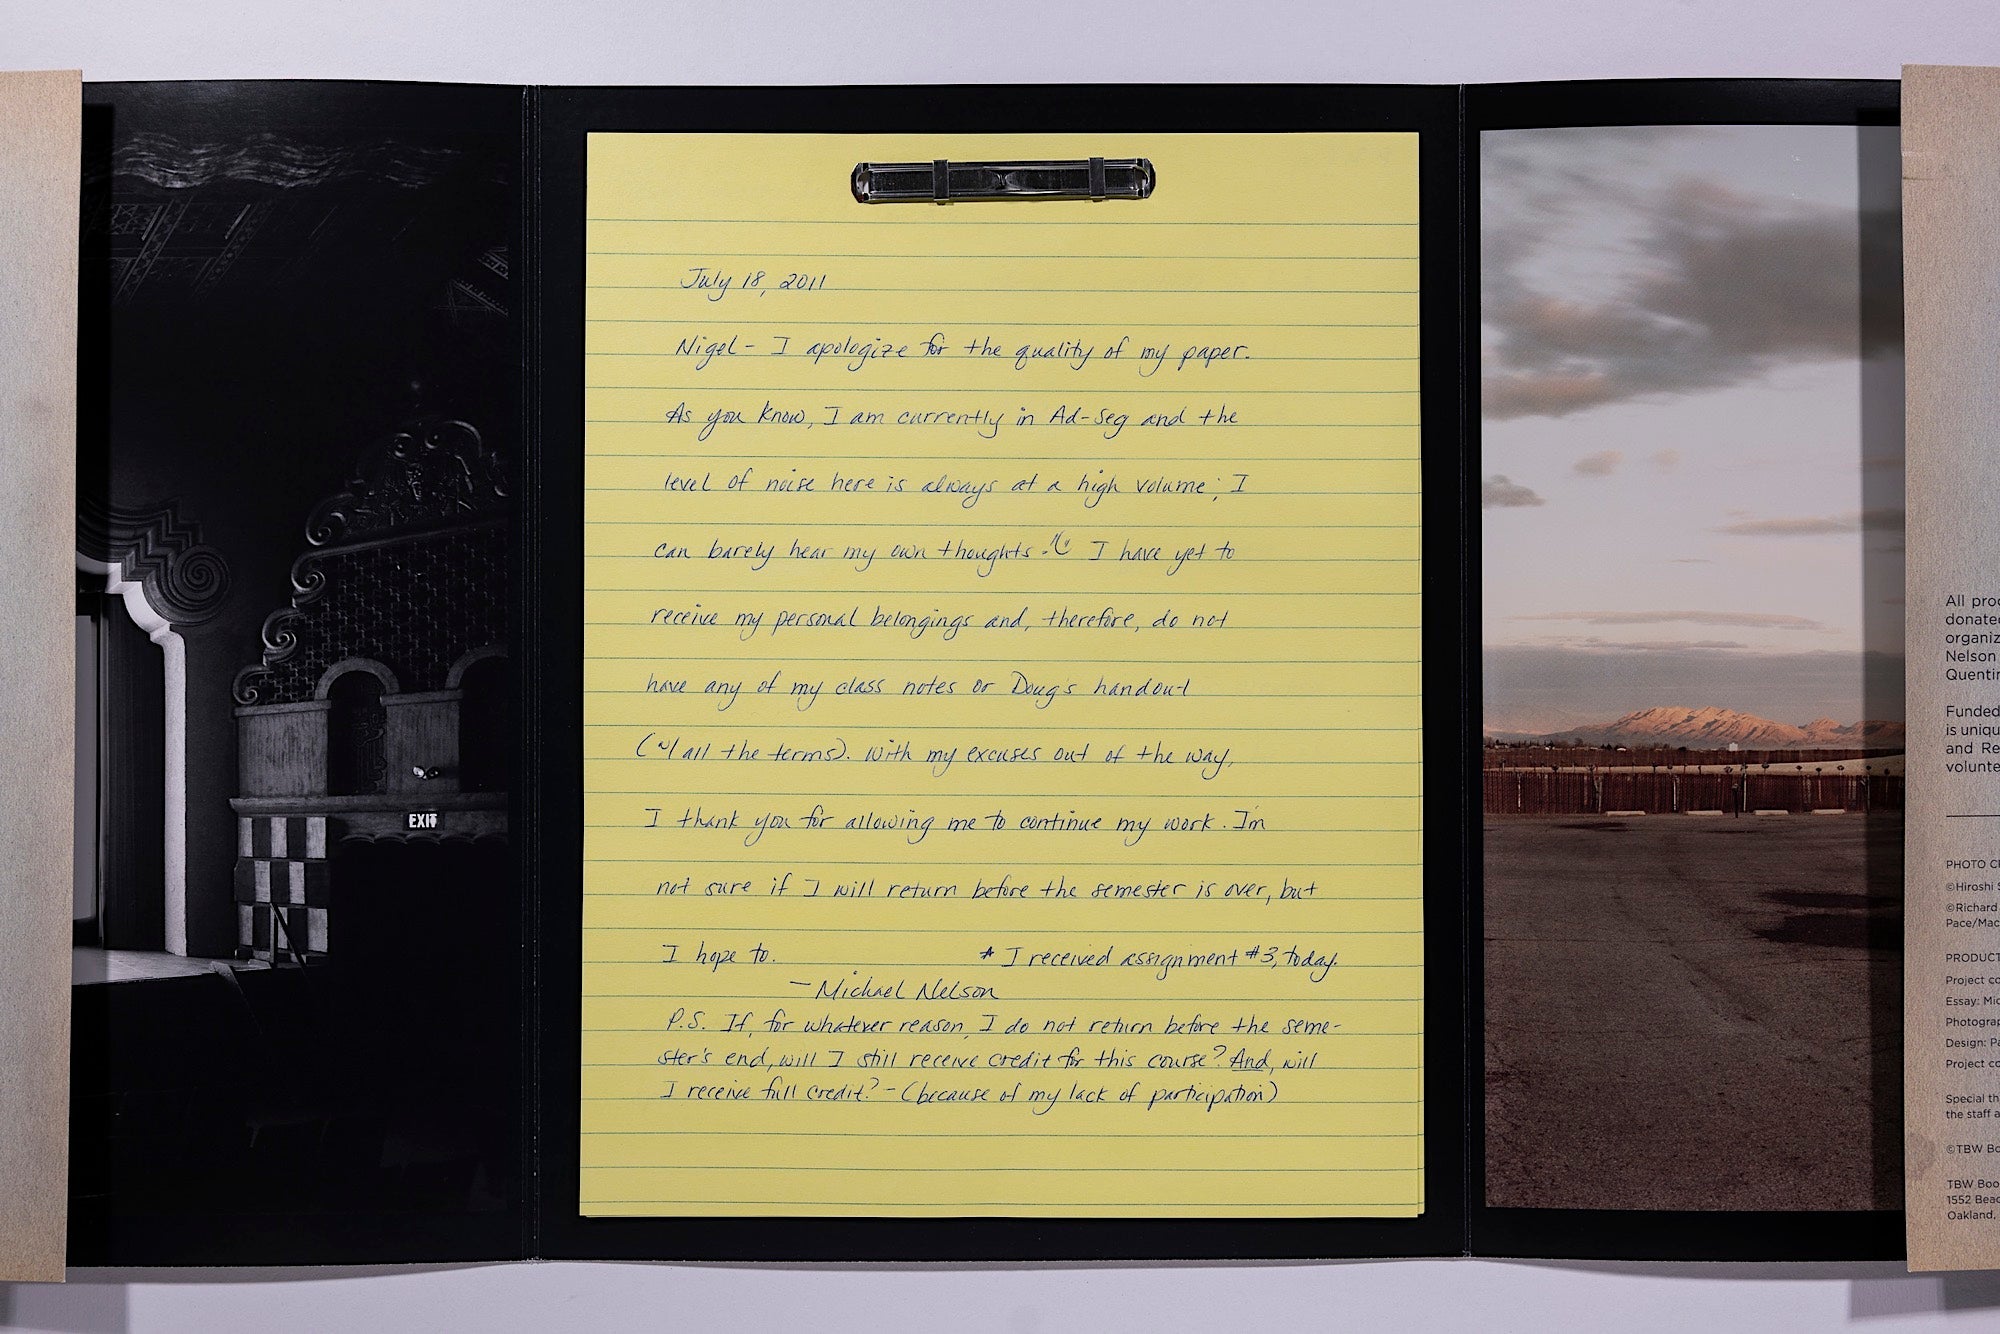 EXIT
July 18, 2011
Nigel- I apologize for the quality of my paper.
As you know, I am currently in Ad-Seg and the
level of noise here is always at a high volume; I
can barely hear my own thoughts. I have yet to
receive my personal belongings and, therefore, do not
have any of my class notes or Doug's handout
(w/ all the terms). With my excuses out of the way,
I thank you for allowing me to continue my work. I'm
not sure if I will return before the semester is over, but
I hope to. * I received assignment #3, today.
- Michael Nelson
P.S. If, for whatever reason, I do not return before the seme-
ster's end, will I still receive credit for this course? And, will
I receive full credit? - (because of my lack of participation)
All
donated
Nelson
Funded
is
and Re
PHOTO
©Hiroshi S
©Richard
Pace/Mac
PRODUCT
Project co
Essay: Mic
Design: Pa
Project co
Special th
the staff a
©TBW Bo
TBW Boo
1552 Beac
Oakland,